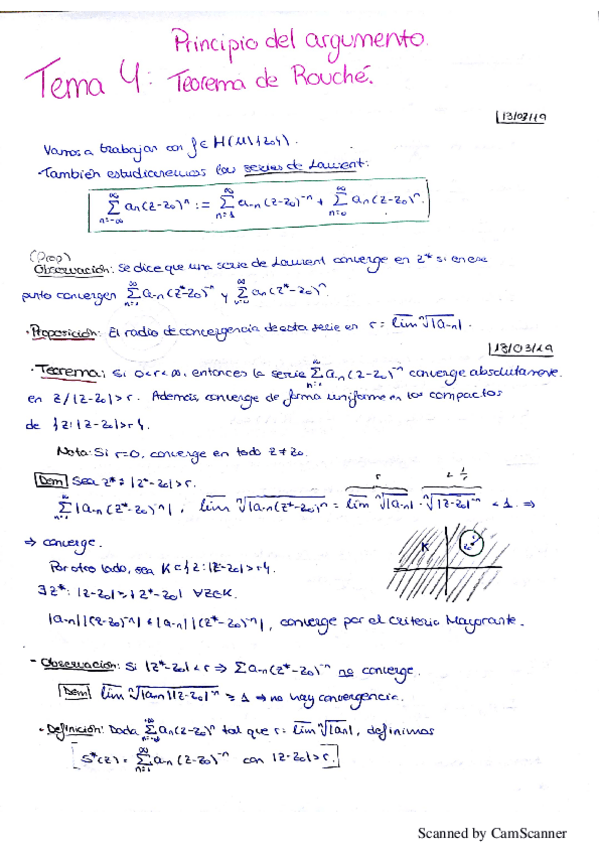 Principio del argumento.
Tema 4: Teorema de Rouché.
13/03/19
Vamos a trabajar con f∈H(U\{z₀}).
·También estudiaremos las series de Laurent:
∑_{n=-∞}^{∞} aₙ(z-z₀)ⁿ := ∑_{n=1}^{∞} a₋ₙ(z-z₀)⁻ⁿ + ∑_{n=0}^{∞} aₙ(z-z₀)ⁿ.
(Prop)
Observación: Se dice que una serie de Laurent converge en z* si en ese
punto convergen ∑_{n=1}^{∞} a₋ₙ(z*-z₀)⁻ⁿ y ∑_{n=0}^{∞} aₙ(z*-z₀)ⁿ.
·Proposición: El radio de convergencia de esta serie es r = lim ⁿ√|a₋ₙ|.
13/03/19
·Teorema: Si 0<r<∞, entonces la serie ∑_{n=1}^{∞} a₋ₙ(z-z₀)⁻ⁿ converge absolutamente
en z/|z-z₀|>r. Además, converge de forma uniforme en los compactos
de {z:|z-z₀|>r}.
Nota: Si r=0, converge en todo z≠z₀.
Dem Sea z*: |z*-z₀|>r.
r < 1/r
∑_{n=1}^{∞} |a₋ₙ(z*-z₀)⁻ⁿ|, lim ⁿ√|a₋ₙ(z*-z₀)⁻ⁿ| = lim ⁿ√|a₋ₙ| · ⁿ√|z-z₀|⁻ⁿ < 1 ⇒
⇒ converge.
K
Por otro lado, sea K={z:|z-z₀|>r}.
∃z*: |z-z₀|>|z*-z₀| ∀z∈K.
|a₋ₙ||(z-z₀)⁻ⁿ|<|a₋ₙ||(z*-z₀)⁻ⁿ|, converge por el Criterio Mayorante.
- Observación: Si |z*-z₀|<r ⇒ ∑a₋ₙ(z*-z₀)⁻ⁿ no converge.
Dem lim ⁿ√|a₋ₙ||z-z₀|⁻ⁿ ≥ 1 ⇒ no hay convergencia.
· Definición: Dada ∑_{n=-∞}^{+∞} aₙ(z-z₀)ⁿ tal que r = lim ⁿ√|aₙ|, definimos
S*(z) = ∑_{n=1}^{∞} a₋ₙ(z-z₀)⁻ⁿ con |z-z₀|>r.
Scanned by CamScanner